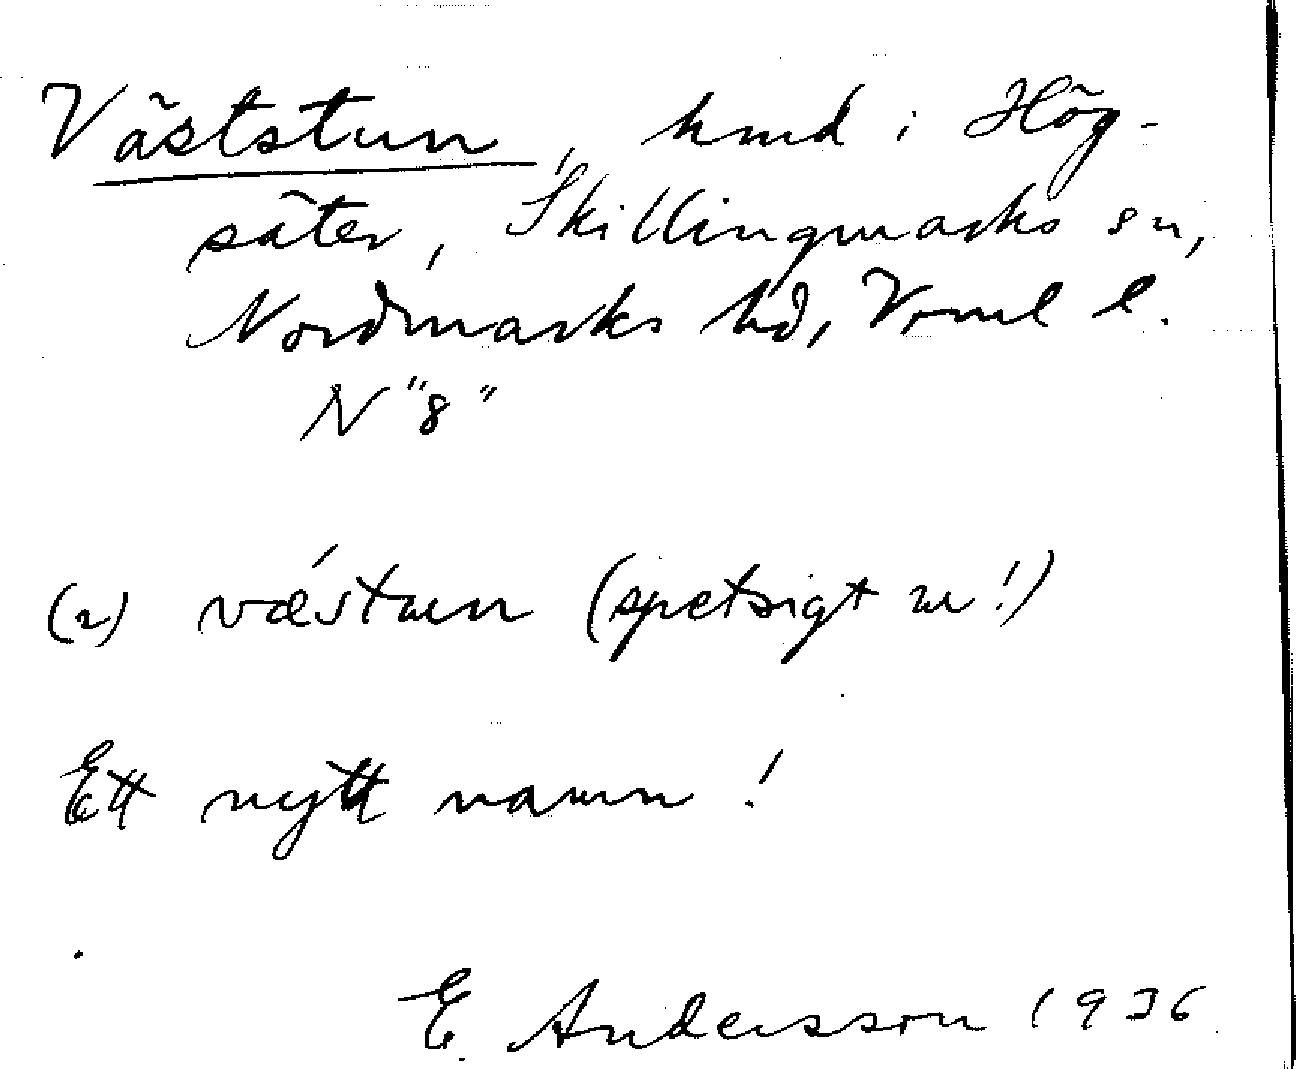 Väststun, hmd i Hög-
säter, Skillingmarks sn,
Nordmarks hd, Verml l.
N "8"
(2) vǽstuen (spetsigt u!)
Ett nytt namn!
E. Andersson 1936